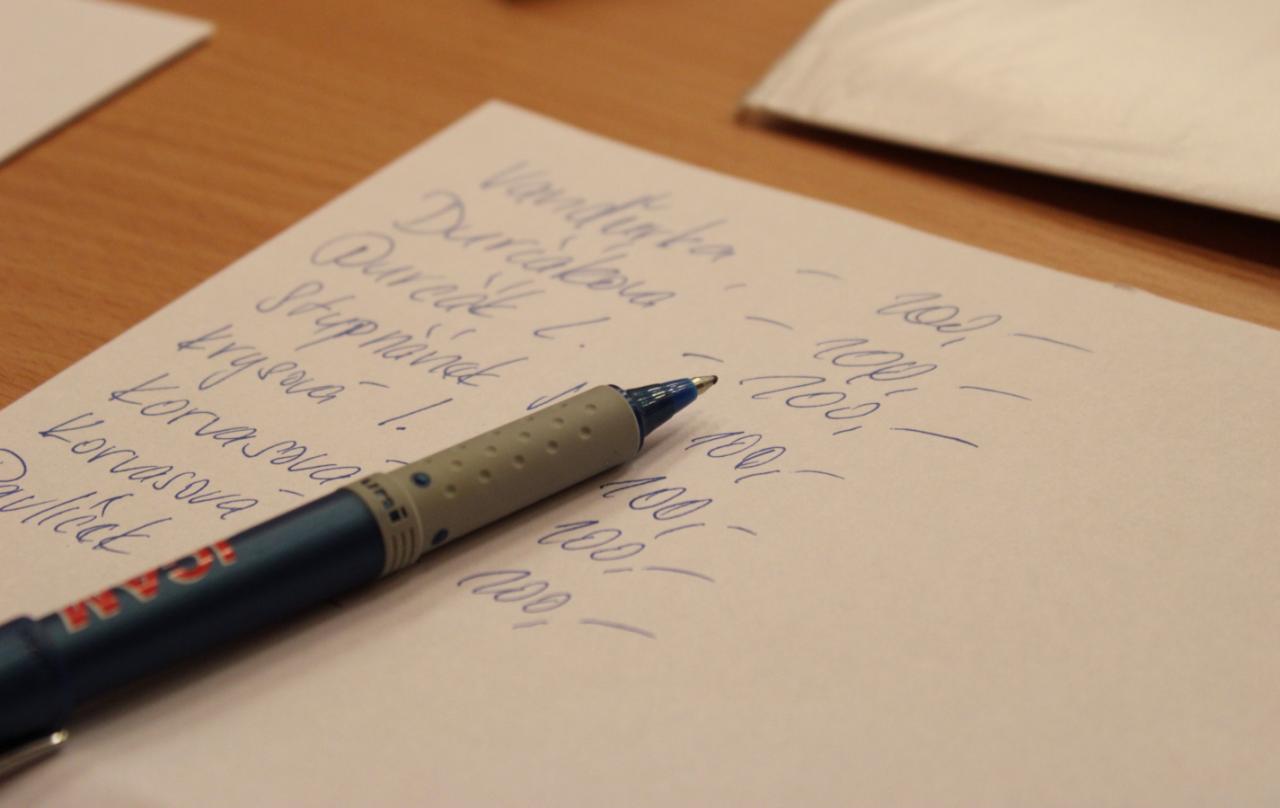 Vandírka - 100,-
Ďurčáková - 100,-
Ďurčák L. - 100,-
Štěpnánek 100,-
Krysová L. 100,-
Korvasová 100,-
Korvasová 100,-
Pavlíček
uni
ICAM